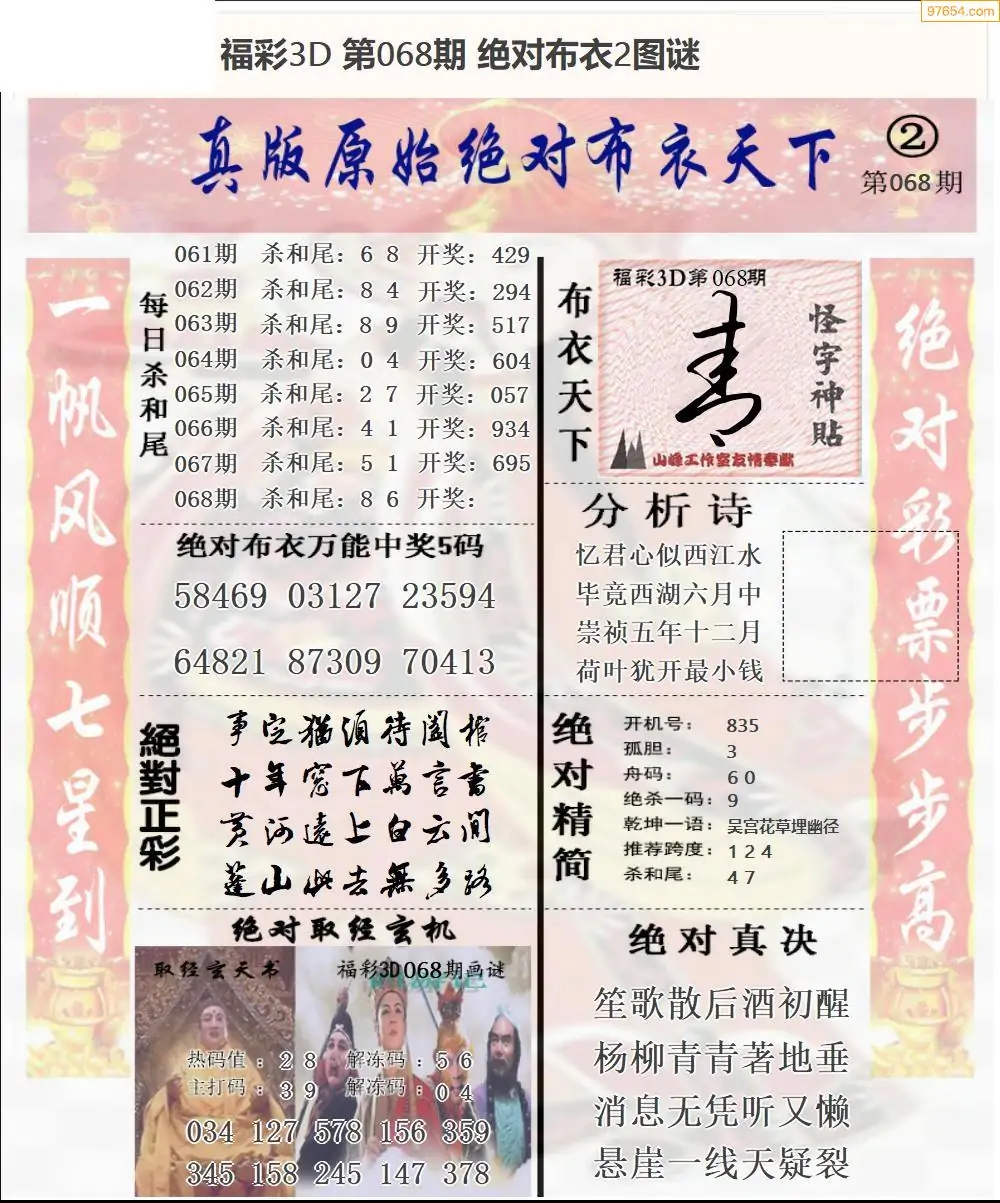 97654.com
福彩3D 第068期 绝对布衣2图谜
真版原始绝对布衣天下
②
第068期
一帆风顺七星到
每日杀和尾
061期 杀和尾：6 8 开奖：429
062期 杀和尾：8 4 开奖：294
063期 杀和尾：8 9 开奖：517
064期 杀和尾：0 4 开奖：604
065期 杀和尾：2 7 开奖：057
066期 杀和尾：4 1 开奖：934
067期 杀和尾：5 1 开奖：695
068期 杀和尾：8 6 开奖：
绝对布衣万能中奖5码
58469 03127 23594
64821 87309 70413
絕對正彩
事定猶須待闔棺
十年窓下萬言書
黄河遠上白云间
蓬山此去無多路
绝对取经玄机
取经玄天书
福彩3D068期画谜
热码值：2 8 解冻码：5 6
主打码：3 9 解冻码：0 4
034 127 578 156 359
345 158 245 147 378
布衣天下
福彩3D第068期
怪字神貼
山峰工作室友情奉献
分析诗
忆君心似西江水
毕竟西湖六月中
崇祯五年十二月
荷叶犹开最小钱
绝对精简
开机号：835
孤胆：3
舟码：6 0
绝杀一码：9
乾坤一语：吴宫花草埋幽径
推荐跨度：1 2 4
杀和尾：4 7
绝对真决
笙歌散后酒初醒
杨柳青青著地垂
消息无凭听又懒
悬崖一线天疑裂
绝对彩票步步高